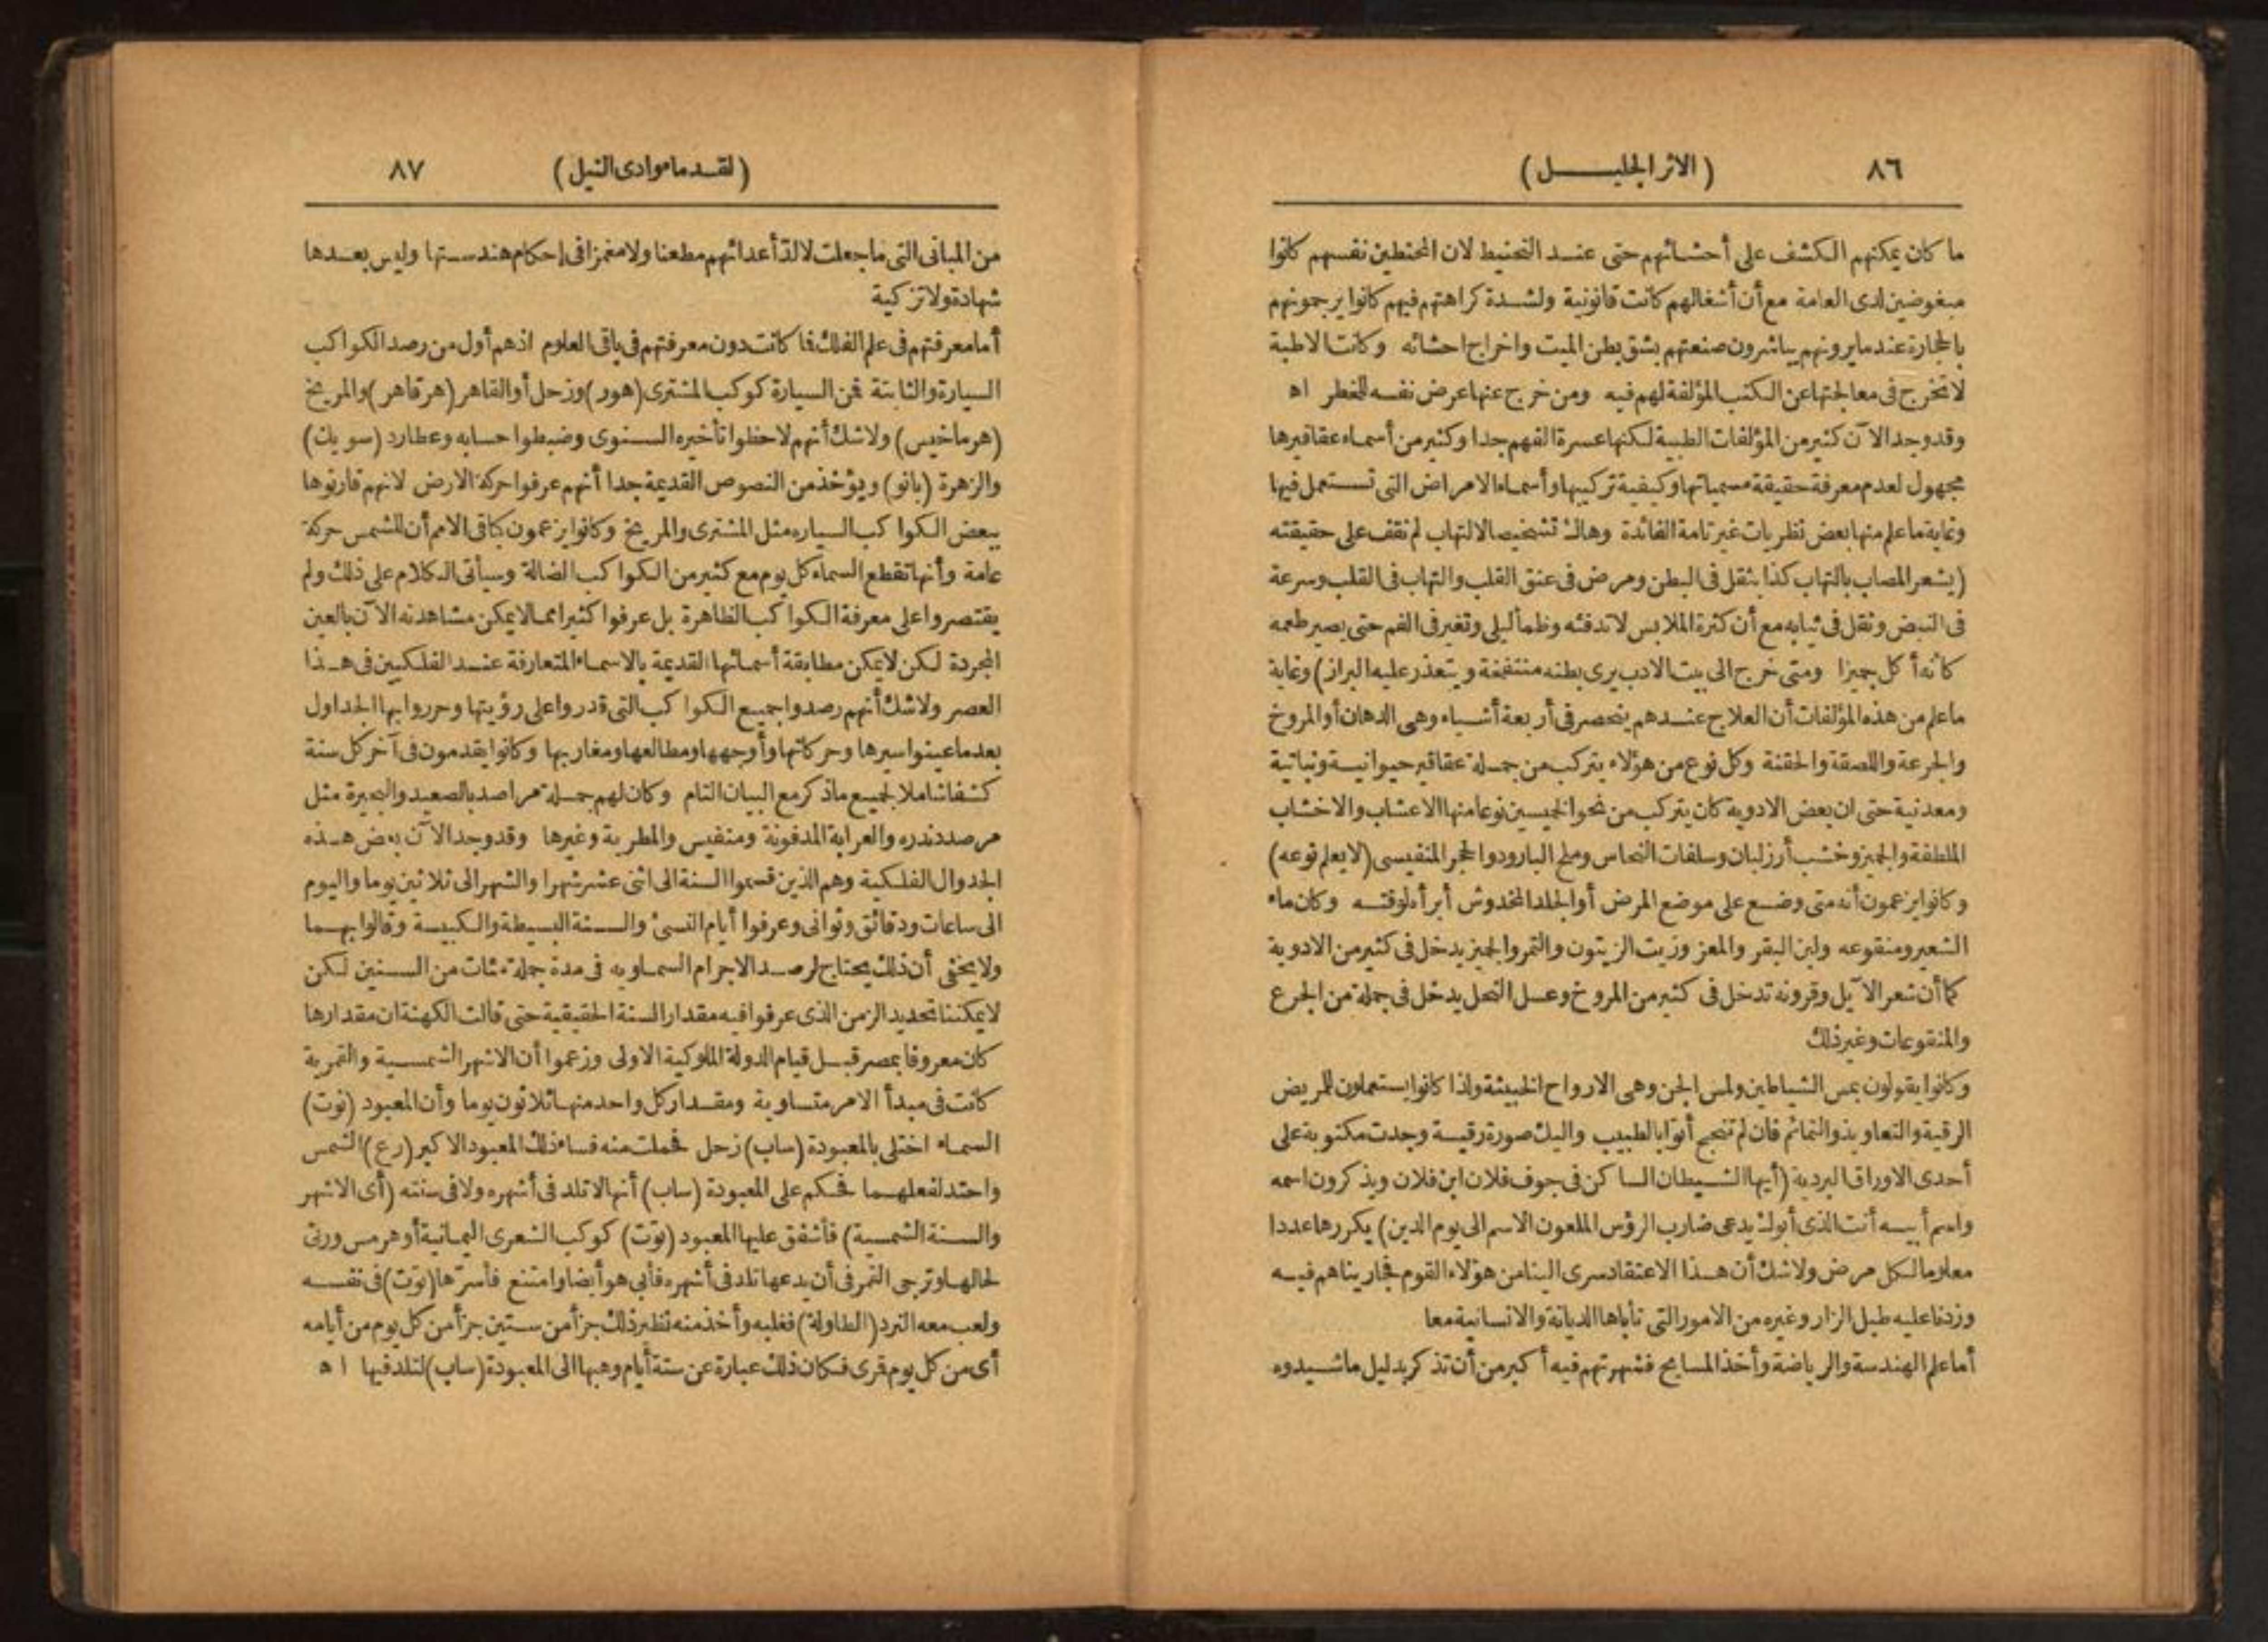 ٨٦ (الاثر الجليل)
ما كان يمكنهم الكشف على أحشائهم حتى عند التحنيط لان المحنطين نفسهم كانوا
مبغوضين لدى العامة مع أن أشغالهم كانت قانونية ولشدة كراهتهم فيهم كانوا يرجمونهم
بالحجارة عندما يرونهم يباشرون صنعتهم بشق بطن الميت واخراج احشائه وكانت الاطبة
لا تخرج فى معالجتها عن الكتب المؤلفة لهم فيه ومن خرج عنها عرض نفسه للخطر اه
وقد وجد الآن كثير من المؤلفات الطبية لكنها عسرة الفهم جدا وكثير من أسماء عقاقيرها
مجهول لعدم معرفة حقيقة مسمياتها وكيفية تركيبها وأسماء الامراض التى تستعمل فيها
وغاية ما علم منها بعض نظريات غير تامة الفائدة وهاك تشخيص الالتهاب لم نقف على حقيقته
(يشعر المصاب بالتهاب كذا بثقل فى البطن ومرض فى عنق القلب والتهاب فى القلب وسرعة
فى النبض وثقل فى ثيابه مع أن كثرة الملابس لا تدفئه وظمأ ليلى وتغير فى الفم حتى يصير طعمه
كأنه أكل جميزا ومتى خرج الى بيت الادب يرى بطنه منتفخة ويتعذر عليه البراز) وغاية
ما علم من هذه المؤلفات أن العلاج عندهم ينحصر فى أربعة أشياء وهى الدهان أو المروخ
والجرعة واللصقة والحقنة وكل نوع من هؤلاء يتركب من جملة عقاقير حيوانية ونباتية
ومعدنية حتى ان بعض الادوية كان يتركب من نحو الخمسين نوعا منها الاعشاب والاخشاب
الملطفة والجميز وخشب أرز لبنان وسلفات النحاس وملح البارود والحجر المنفيسى (لا يعلم نوعه)
وكانوا يزعمون أنه متى وضع على موضع المرض أو الجلد المخدوش أبرأه لوقته وكان ماء
الشعير ومنقوعه ولبن البقر والمعز وزيت الزيتون والتمر والجميز يدخل فى كثير من الادوية
كما أن شعر الآيل وقرونه تدخل فى كثير من المروخ وعسل النحل يدخل فى جملة من الجرع
والمنقوعات وغير ذلك
وكانوا يقولون بمس الشياطين ولمس الجن وهى الارواح الخبيثة ولذا كانوا يستعملون للمريض
الرقية والتعاويذ والتمائم فان لم تنجح أتوا بالطبيب واليك صورة رقية وجدت مكتوبة على
أحدى الاوراق البردية (أيها الشيطان الساكن فى جوف فلان ابن فلان ويذكرون اسمه
واسم أبيه أنت الذى أبوك يدعى ضارب الرؤس الملعون الاسم الى يوم الدين) يكررها عددا
معلوما لكل مرض ولا شك أن هذا الاعتقاد سرى الينا من هؤلاء القوم فجاريناهم فيه
وزدنا عليه طبل الزار وغيره من الامور التى تأباها الديانة والانسانية معا
أما علم الهندسة والرياضة وأخذ المسايح فشهرتهم فيه أكبر من أن تذكر بدليل ما شيدوه
(لقدماء وادى النيل) ٨٧
من المبانى التى ما جعلت لالد أعدائهم مطعنا ولا مغمزا فى احكام هندستها وليس بعدها
شهادة ولا تزكية
أما معرفتهم فى علم الفلك فما كانت دون معرفتهم فى باقى العلوم اذ هم أول من رصد الكواكب
السيارة والثابتة فمن السيارة كوكب المشترى (هور) وزحل أو القاهر (هرقاهر) والمريخ
(هرماخيس) ولا شك أنهم لاحظوا تأخيره السنوى وضبطوا حسابه وعطارد (سويك)
والزهرة (بانو) ويؤخذ من النصوص القديمة جدا أنهم عرفوا حركة الارض لانهم قارنوها
ببعض الكواكب السياره مثل المشترى والمريخ وكانوا يزعمون كباقى الامم أن للشمس حركة
عامة وأنها تقطع السماء كل يوم مع كثير من الكواكب الضالة وسيأتى الكلام على ذلك ولم
يقتصروا على معرفة الكواكب الظاهرة بل عرفوا كثيرا مما لا يمكن مشاهدته الآن بالعين
المجردة لكن لا يمكن مطابقة أسمائها القديمة بالاسماء المتعارفة عند الفلكيين فى هذا
العصر ولا شك أنهم رصدوا جميع الكواكب التى قدروا على رؤيتها وحرروا بها الجداول
بعد ما عينوا سيرها وحركاتها وأوجهها ومطالعها ومغاربها وكانوا يقدمون فى آخر كل سنة
كشفا شاملا لجميع ما ذكر مع البيان التام وكان لهم جملة مراصد بالصعيد والبحيرة مثل
مرصد دندره والعرابة المدفونة ومنفيس والمطرية وغيرها وقد وجد الآن بعض هذه
الجدوال الفلكية وهم الذين قسموا السنة الى اثنى عشر شهرا والشهر الى ثلاثين يوما واليوم
الى ساعات ودقائق وثوانى وعرفوا أيام النسئ والسنة البسيطة والكبيسة وقالوا بهما
ولا يخفى أن ذلك يحتاج لرصد الاجرام السماويه فى مدة جملة مئات من السنين لكن
لا يمكننا تحديد الزمن الذى عرفوا فيه مقدار السنة الحقيقية حتى قالت الكهنة ان مقدارها
كان معروفا بمصر قبل قيام الدولة الملوكية الاولى وزعموا أن الاشهر الشمسية والقمرية
كانت فى مبدأ الامر متساوية ومقدار كل واحد منها ثلاثون يوما وأن المعبود (نوت)
السماء اختلى بالمعبودة (ساب) زحل فحملت منه فساء ذلك المعبود الاكبر (رع) الشمس
واحتد لفعلهما فحكم على المعبودة (ساب) أنها لا تلد فى أشهره ولا فى سنته (أى الاشهر
والسنة الشمسية) فأشفق عليها المعبود (توت) كوكب الشعرى اليمانية أو هرمس ورثى
لحالها وترجى القمر فى أن يدعها تلد فى أشهره فأبى هو أيضا وامتنع فأسرّها (توت) فى نفسه
ولعب معه النرد (الطاولة) فغلبه وأخذ منه نظير ذلك جزأ من ستين جزأ من كل يوم من أيامه
أى من كل يوم قمرى فكان ذلك عبارة عن ستة أيام وهبها الى المعبودة (ساب) لتلد فيها اه